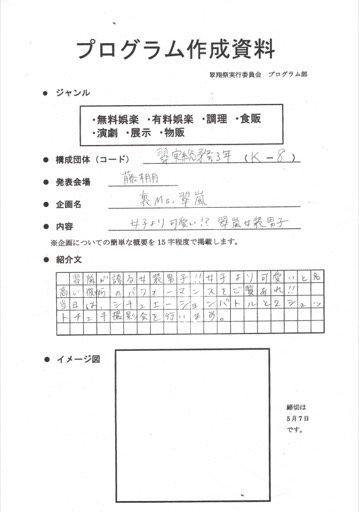 プログラム作成資料
翠翔祭実行委員会 プログラム部
● ジャンル
・無料娯楽 ・有料娯楽 ・調理 ・食販
・演劇 ・展示 ・物販
● 構成団体（コード） 翠実総務3年 （K-8）
● 発表会場 藤棚
● 企画名 裏Ms.翠嵐
● 内容 女子より可愛い!? 翠嵐女装男子
※企画についての簡単な概要を15字程度で掲載します。
● 紹介文
翠嵐が誇る女装男子!!女子より可愛いと名
高い彼らのパフォーマンスをご覧あれ!!
当日は、シチュエーションバトルと2ショッ
トチェキ撮影会を行います。
● イメージ図
締切は
5月7日
です。